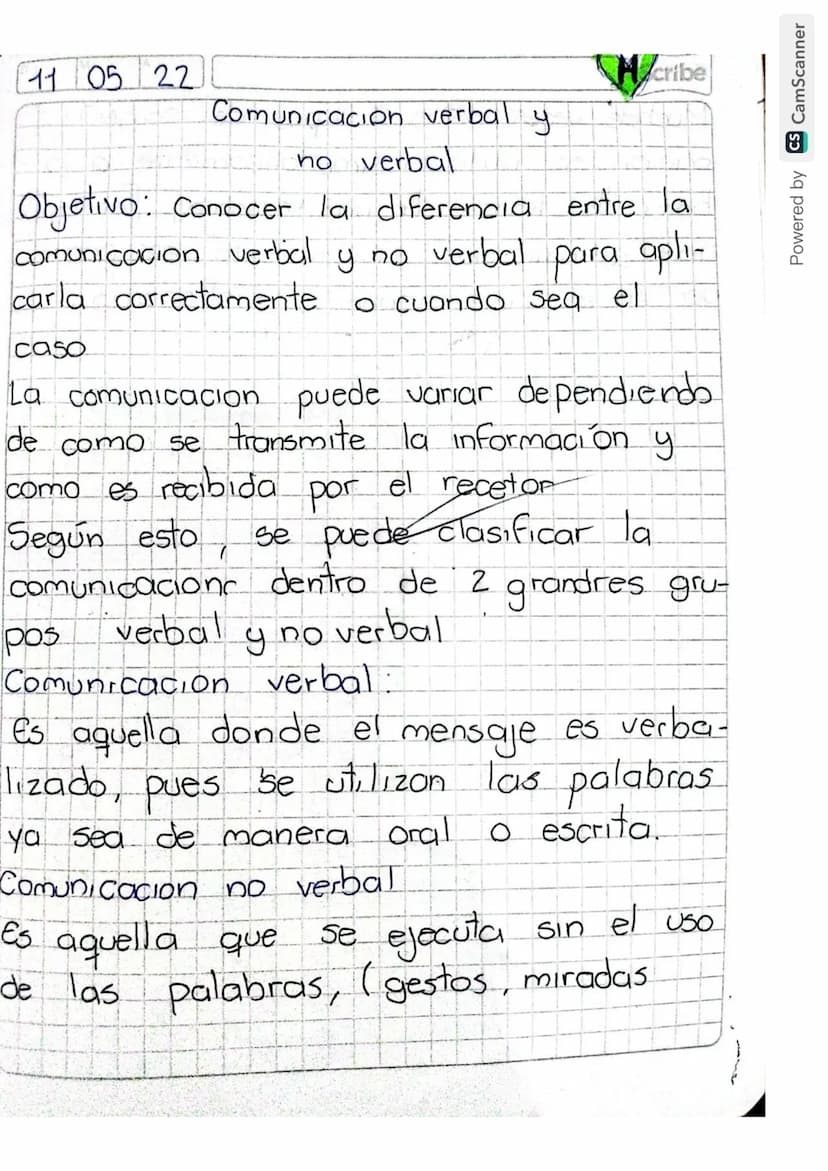 11 05 22
Scribe
Comunicacion verbal y
no verbal
Objetivo: Conocer la diferencia entre la
comunicacion verbal y no verbal para apli-
carla correctamente o cuando sea el
caso
La comunicacion puede variar dependiendo
de como se transmite la información y
como es recibida por el recetor
Según esto, se puede clasificar la
comunicacion dentro de 2 grandres gru-
pos verbal y no verbal
Comunicacion verbal:
Es aquella donde el mensaje es verba-
lizado, pues se utilizan las palabras
ya sea de manera oral o escrita.
Comunicacion no verbal
Es aquella que se ejecuta sin el uso
de las palabras, (gestos, miradas
Powered by CS CamScanner